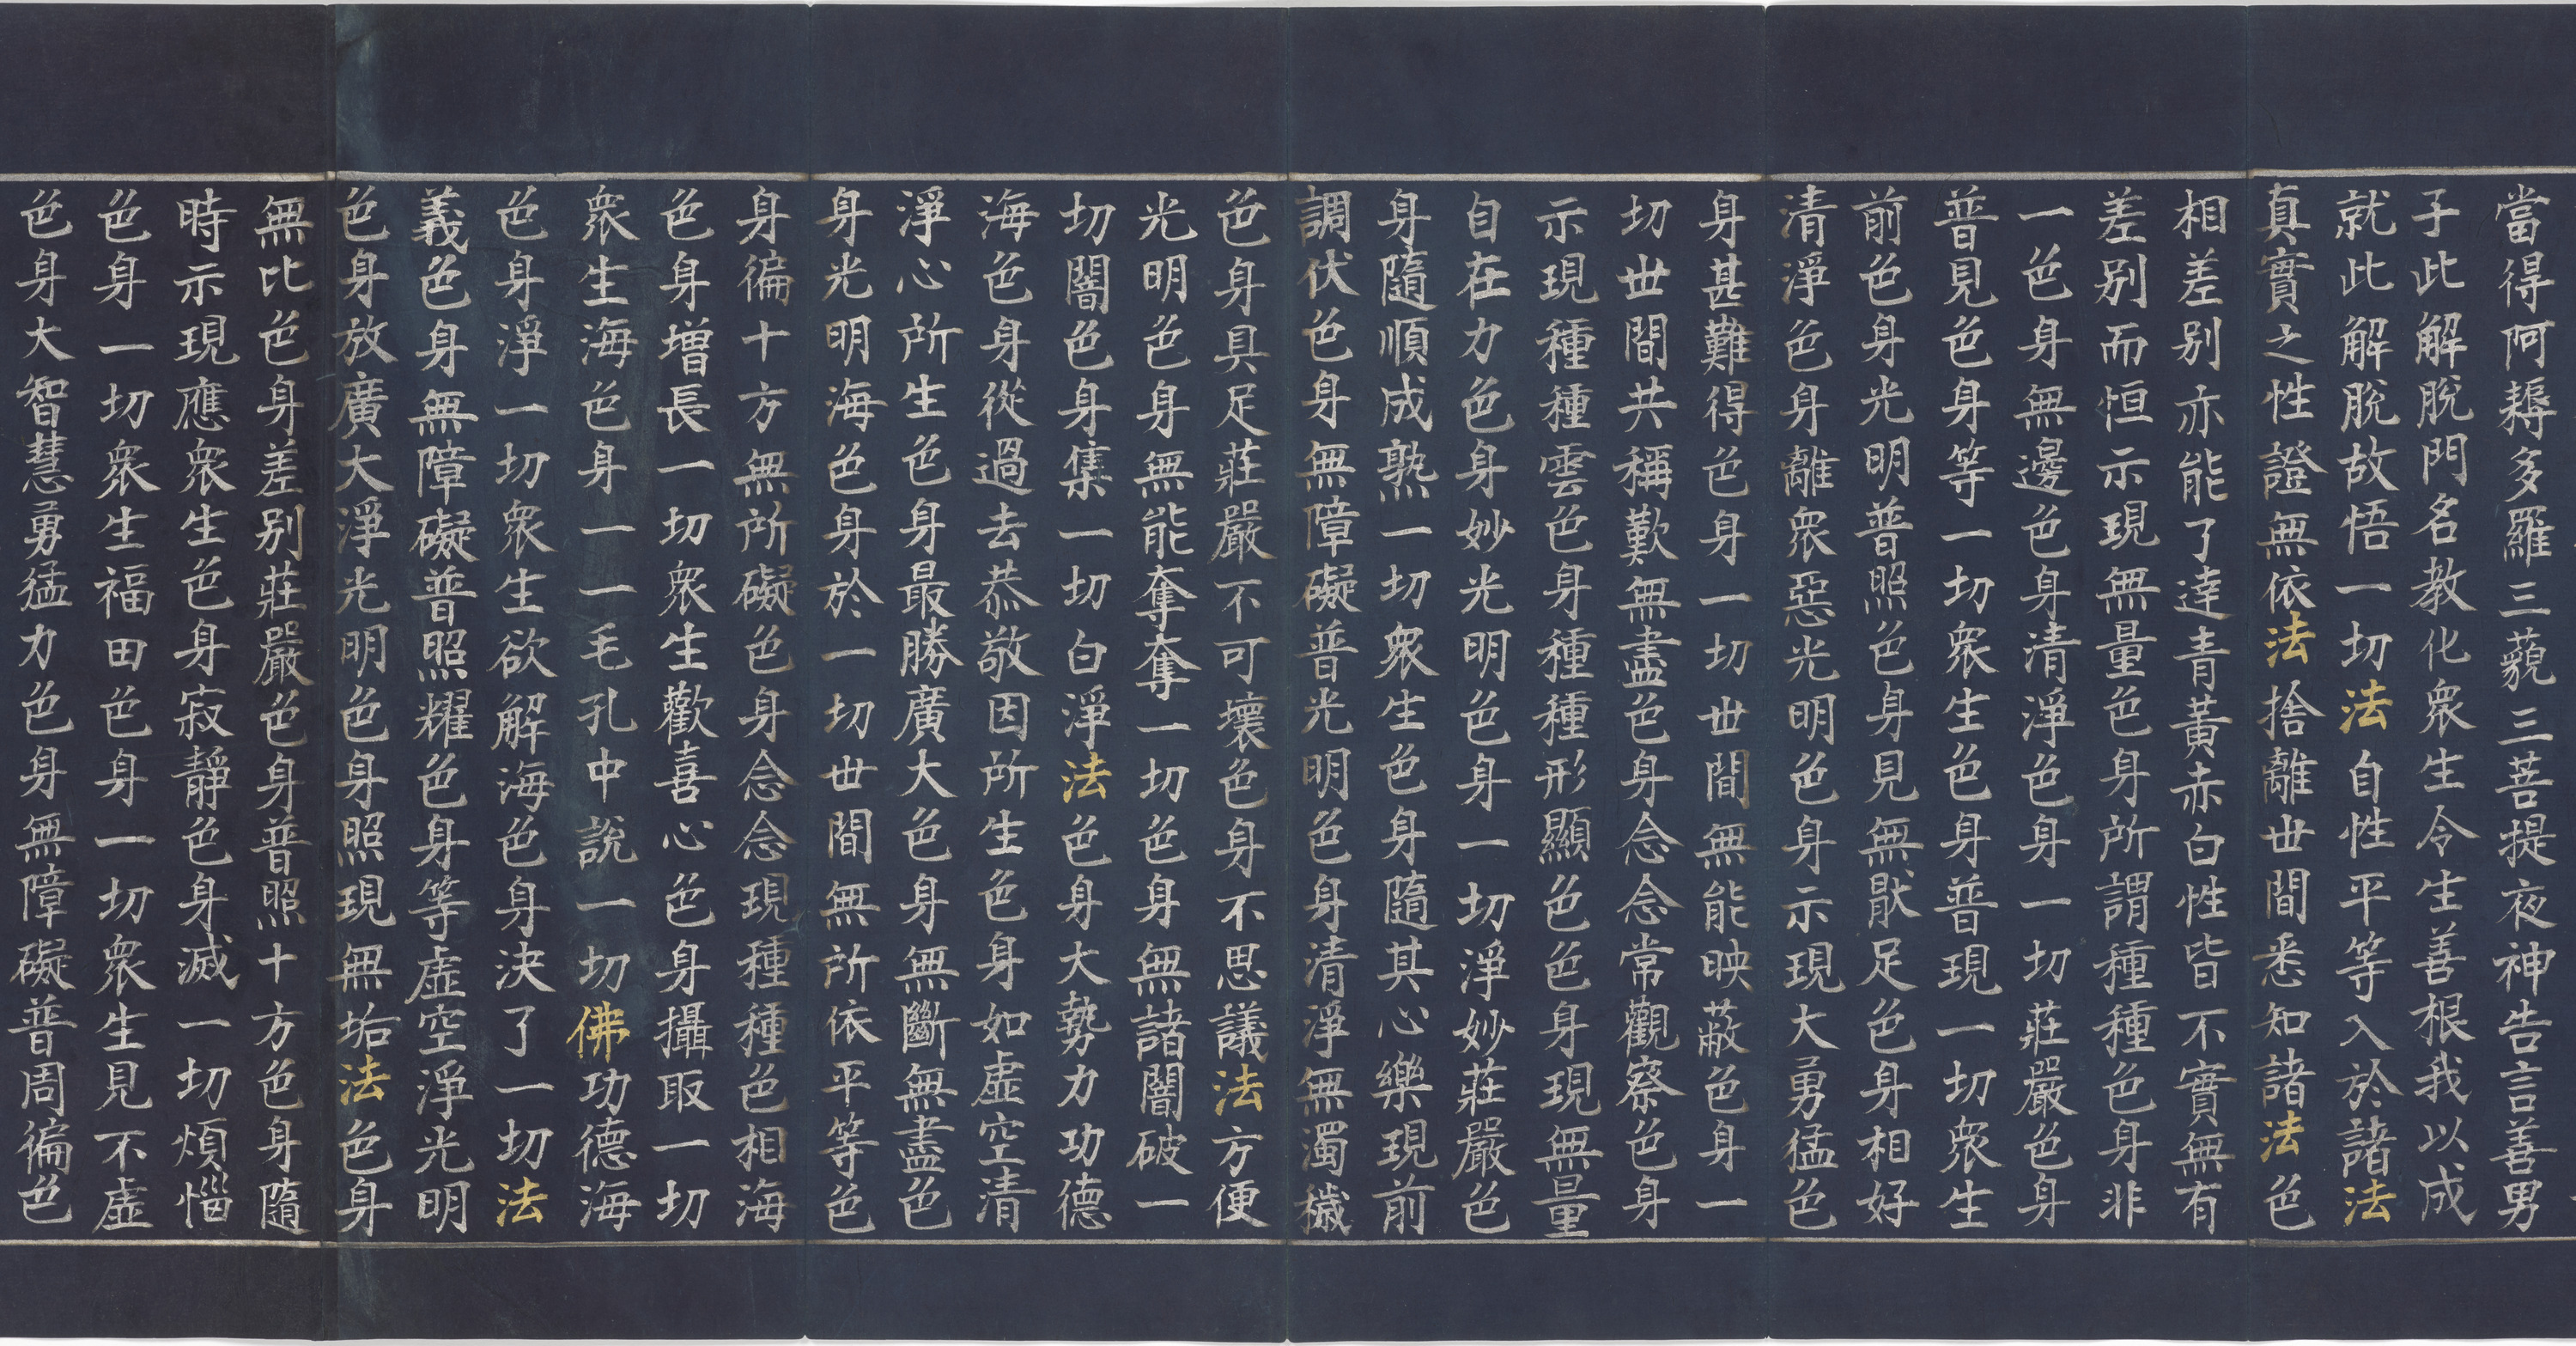 當得阿耨多羅三藐三菩提夜神告言善男
子此解脫門名教化衆生令生善根我以成
就此解脫故悟一切法自性平等入於諸法
真實之性證無依法捨離世間悉知諸法色
相差别亦能了達青黃赤白性皆不實無有
差别而恒示現無量色身所謂種種色身非
一色身無邊色身清淨色身一切莊嚴色身
普見色身等一切衆生色身普現一切衆生
前色身光明普照色身見無猒足色身相好
清淨色身離衆惡光明色身示現大勇猛色
身甚難得色身一切世間無能映蔽色身一
切世間共稱歎無盡色身念念常觀察色身
示現種種雲色身種種形顯色色身現無量
自在力色身妙光明色身一切淨妙莊嚴色
身隨順成熟一切衆生色身隨其心樂現前
調伏色身無障礙普光明色身清淨無濁穢
色身具足莊嚴不可壞色身不思議法方便
光明色身無能奪奪一切色身無諸闇破一
切闇色身集一切白淨法色身大勢力功德
海色身從過去恭敬因所生色身如虛空清
淨心所生色身最勝廣大色身無斷無盡色
身光明海色身於一切世間無所依平等色
身徧十方無所礙色身念念現種種色相海
色身增長一切衆生歡喜心色身攝取一切
衆生海色身一一毛孔中說一切佛功德海
色身淨一切衆生欲解海色身決了一切法
義色身無障礙普照耀色身等虛空淨光明
色身放廣大淨光明色身照現無垢法色身
無比色身差别莊嚴色身普照十方色身隨
時示現應衆生色身寂靜色身滅一切煩惱
色身一切衆生福田色身一切衆生見不虛
色身大智慧勇猛力色身無障礙普周徧色